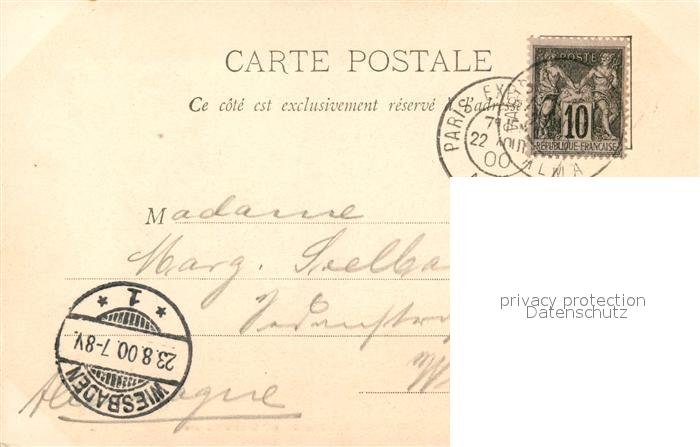 CARTE POSTALE
Ce côté est exclusivement réservé à l'adresse
POSTE
10
RÉPUBLIQUE FRANÇAISE
PARIS EXP
7
22 AOUT
00
ALMA
Madame
Marg.
privacy protection
Datenschutz
1
23.8.00.7-8V.
WIESBADEN
Allemagne